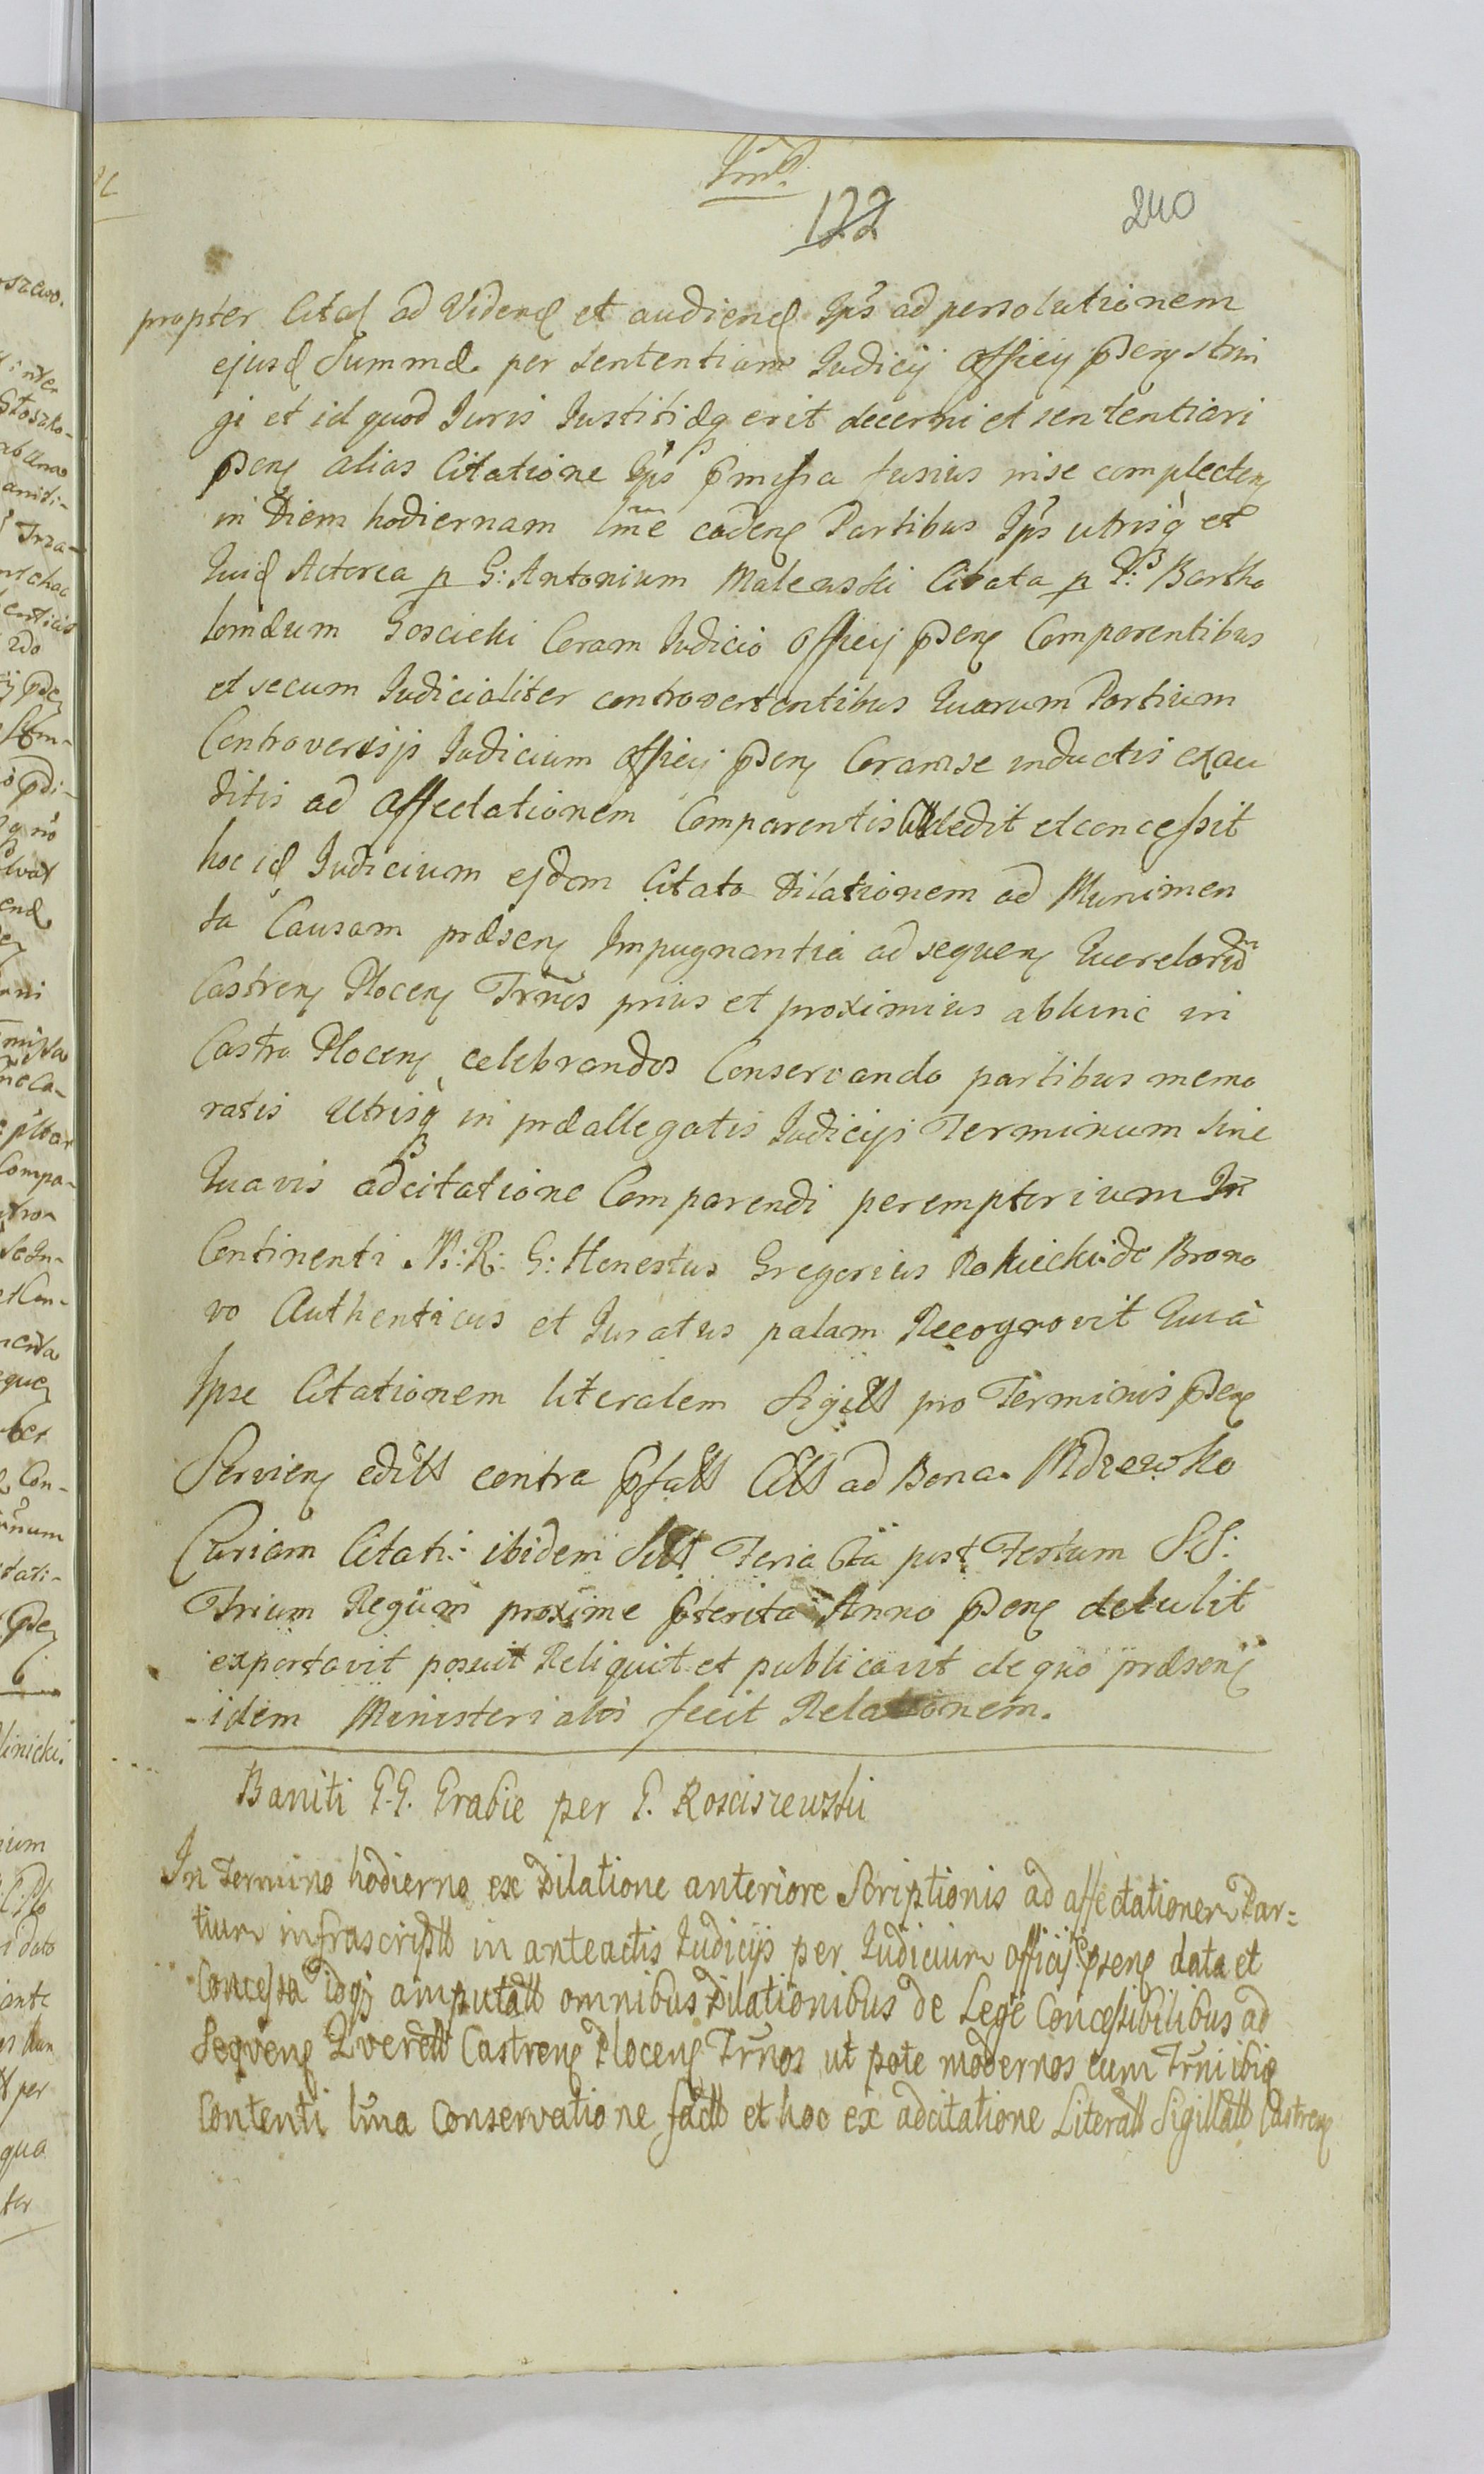 122 240
propter Citaõ ad Videnđ et audienđ Ips ad persolutionem
ejusđ Summæ per Sententiam Judicij Officij pseñ strin
gi et id quod Juris Justitiæq erit decerni et sententiari
pseñ alias Citatione Ips pmissa fusius in se complecteñ
in Diem hodiernam lme cadeñ Partibus Ips utrisq et
Quiđ Actorea p G: Antonium Malewski Citata p P: Bartho
lomæum Goscicki Coram Judicio Officij pseñ Comparentibus
et secum Judicialiter controvertentibus Quarum Partium
Controversijs Judicium Officij pseñ Coram se inductis exau
ditis ad Affectationem Comparentis dedit et concessit
hoc iđ Judicium ejdem Citato Dilationem ad Munimen
ta Causam præseñ Impugnantia ad sequeñ Querelarũ
Castreñ Ploceñ Trños prius et proximius abhinc in
Castro Ploceñ celebrandos Conservando partibus memo
ratis Utrisq in præallegatis Judicijs Terminum sine
Quavis adcitatione Comparendi peremptorium In
Continenti M: R: G: Honestus Gregorius Rokicki de Brono
vo Authenticus et Juratus palam Recognovit Quia
Ipse Citationem literalem Sigill pro Terminis pseñ
Servieñ edit contra ad Bona Mdzewko
Curiam Citati ibidem Sit Feria 6ta post Festum S.S:
Trium Regum proxime pterita Anno pseñ detulit
exportavit posuit Reliquit et publicavit de quo præseñ
idem Ministerialis fecit Relationem.
Baniti G.G. Grabie per G. Rosciszewski
In Termino hodierno ex Dilatione anteriore Scriptionis ad affectationem Par=
tium infrascript in anteactis Judicijs per Judicium officij pseñ data et
Concessa idq amputat omnibus Dilationibus de Lege Concessibilibus ad
Sequeñ Querell Castreñ Ploceñ Trños ut pote modernos cum Trñi ibiđ
Contenti lma Conservatione fact et hoc ex adcitatione Literall Sigillat Castreñ